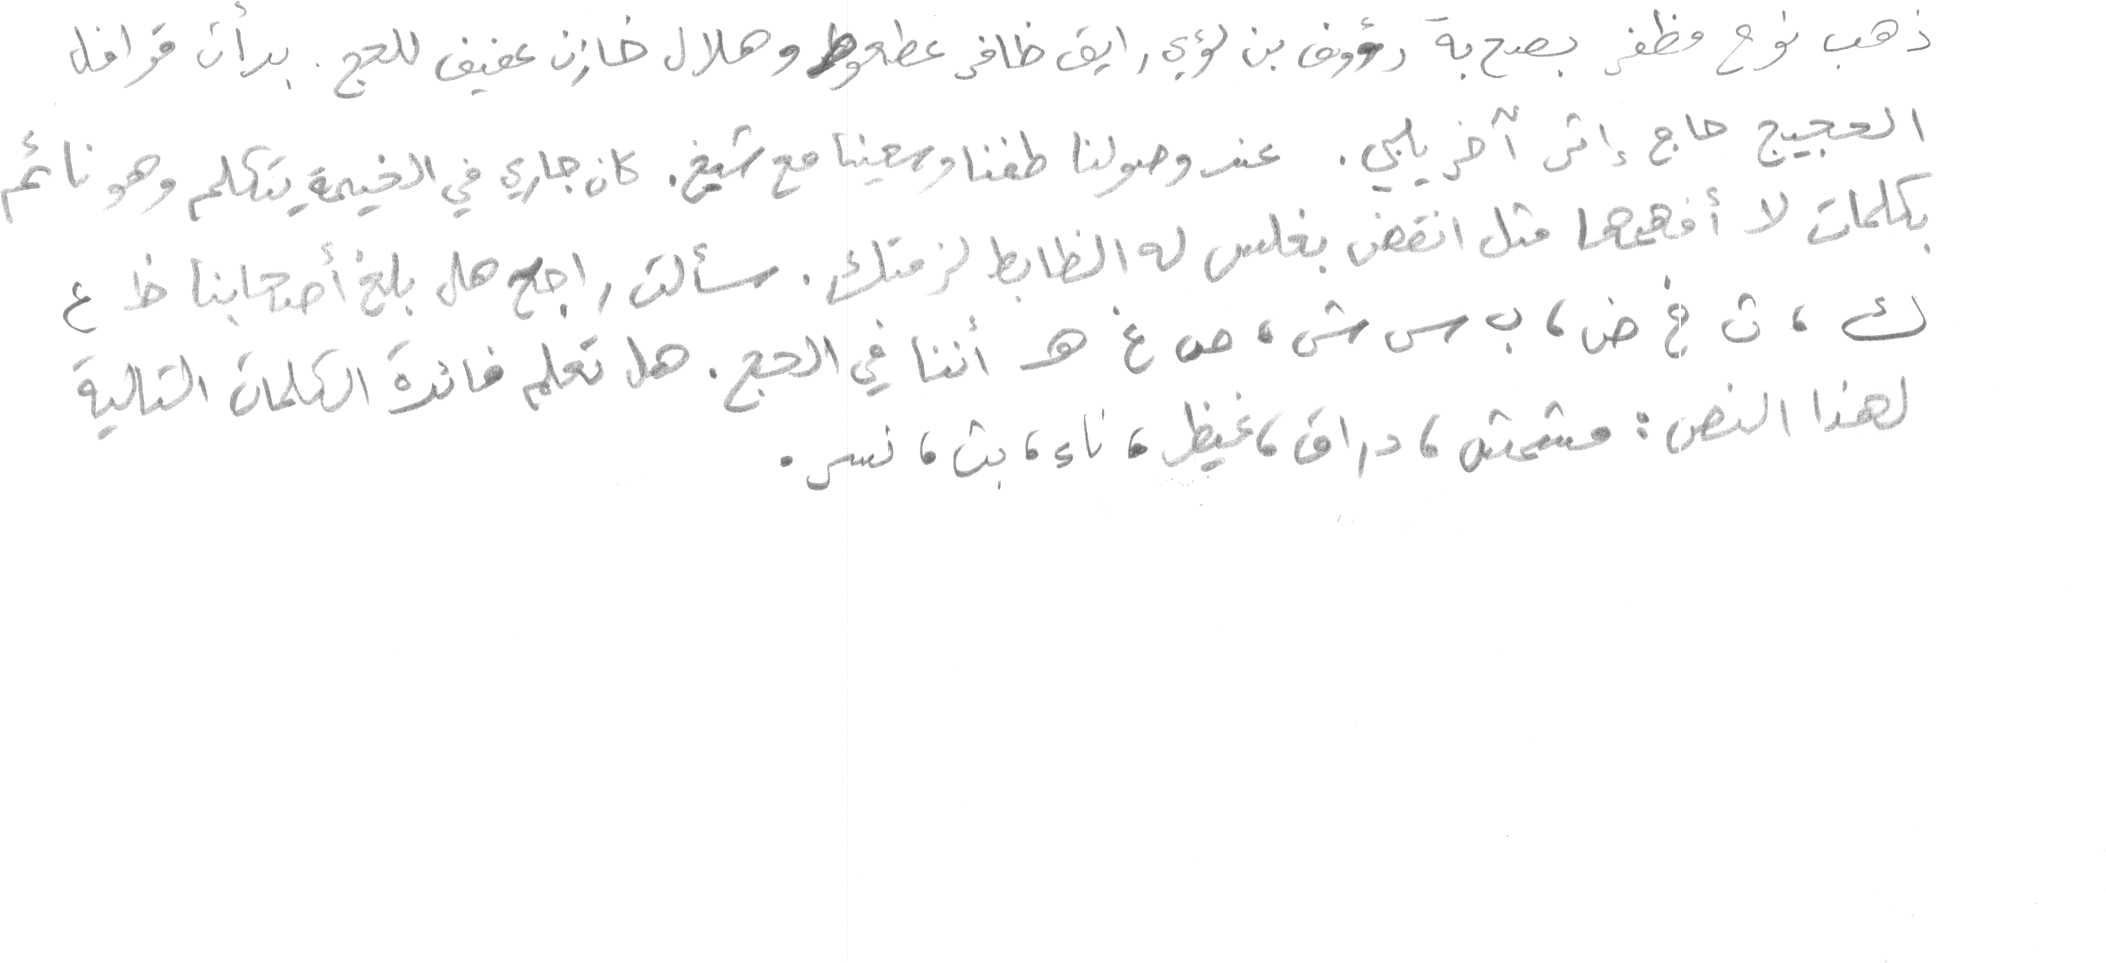 ذهب نوح مظفر بصحبة رؤوف بن لؤي رايق ظافر عطعوط وهلال خازن عفيف للحج. بدأت قوافل
الحجيج حاج إثر آخر يلبي. عند وصولنا طفنا وسعينا مع شيخ. كان جاري في الخيمة يتكلم وهو نائم
بكلمات لا أفهمها مثل انقض بغلس له الظابط لزمتك. سألت راجح هل بلغ أصحابنا خذ ع
ك، ث غ ض، ب س ش، ص غ هـ أننا في الحج. هل تعلم فائدة الكلمات التالية
لهذا النص: مشمش، دراق، غيظ، ناء، بث، نسر.